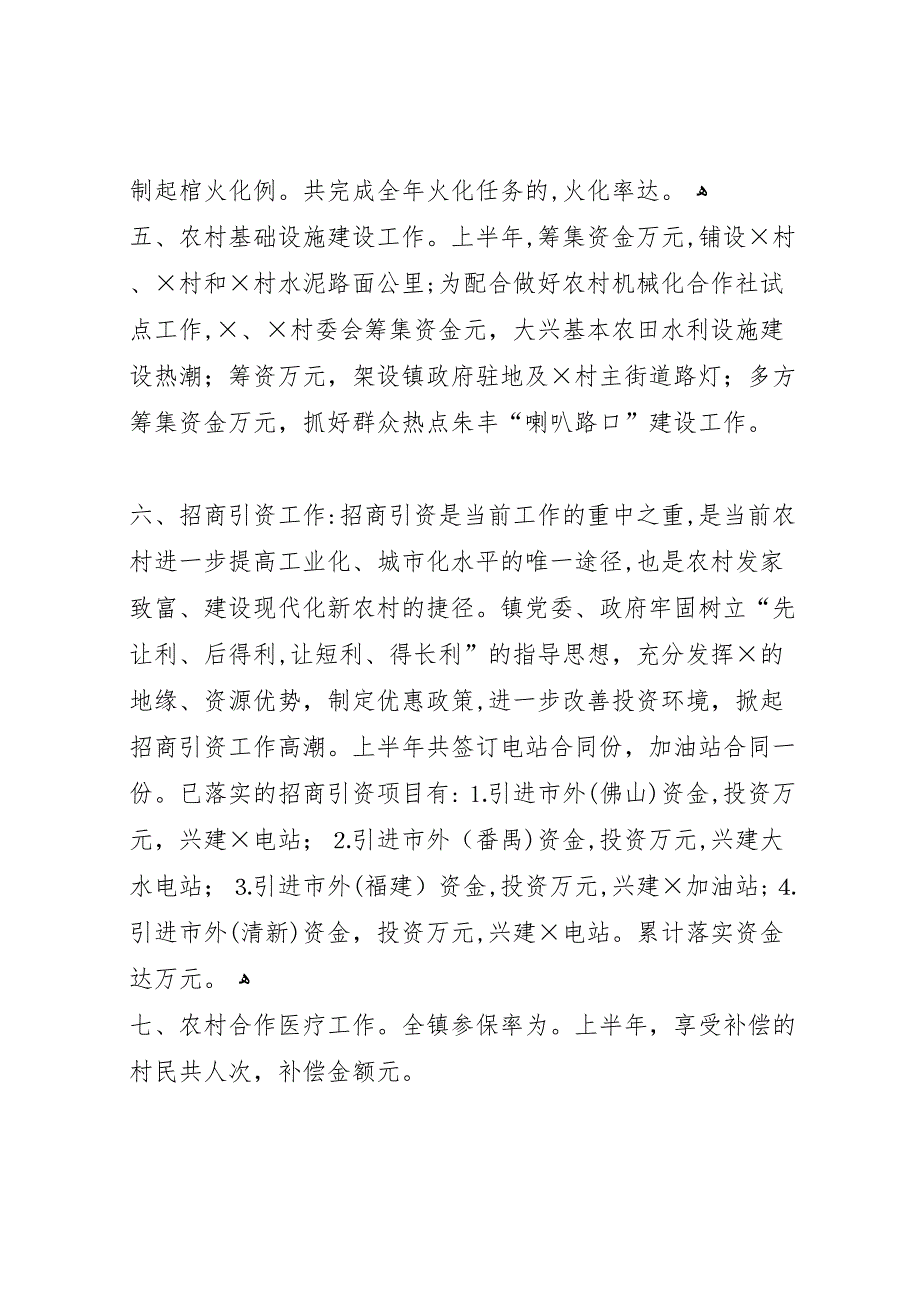 制起棺火化例。共完成全年火化任务的,火化率达。 ﻫ
五、农村基础设施建设工作。上半年,筹集资金万元,铺设×村
、×村和×村水泥路面公里;为配合做好农村机械化合作社试
点工作,×、×村委会筹集资金元，大兴基本农田水利设施建
设热潮；筹资万元，架设镇政府驻地及×村主街道路灯；多方
筹集资金万元，抓好群众热点朱丰“喇叭路口”建设工作。
六、招商引资工作:招商引资是当前工作的重中之重,是当前农
村进一步提高工业化、城市化水平的唯一途径,也是农村发家
致富、建设现代化新农村的捷径。镇党委、政府牢固树立“先
让利、后得利,让短利、得长利”的指导思想，充分发挥×的
地缘、资源优势，制定优惠政策,进一步改善投资环境，掀起
招商引资工作高潮。上半年共签订电站合同份，加油站合同一
份。已落实的招商引资项目有: ⒈引进市外(佛山)资金,投资万
元，兴建×电站； ⒉引进市外（番禺)资金,投资万元,兴建大
水电站； ⒊引进市外(福建）资金,投资万元,兴建×加油站; ⒋
引进市外(清新)资金，投资万元,兴建×电站。累计落实资金
达万元。 ﻫ
七、农村合作医疗工作。全镇参保率为。上半年，享受补偿的
村民共人次，补偿金额元。